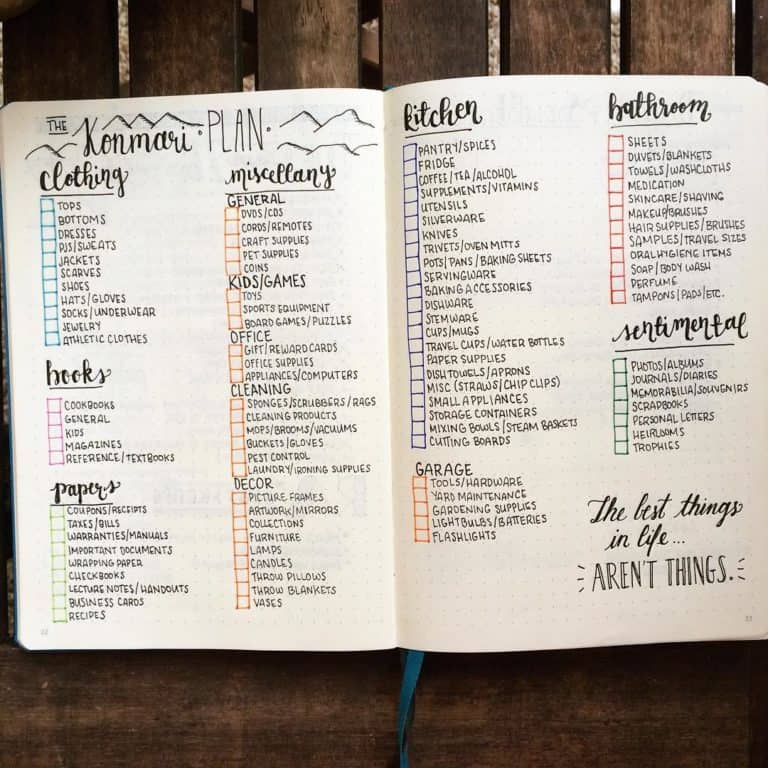 THE Konmari • PLAN •
clothing
TOPS
BOTTOMS
DRESSES
PJS/SWEATS
JACKETS
SCARVES
SHOES
HATS/GLOVES
SOCKS/UNDERWEAR
JEWELRY
ATHLETIC CLOTHES
books
COOKBOOKS
GENERAL
KIDS
MAGAZINES
REFERENCE/TEXTBOOKS
papers
COUPONS/RECEIPTS
TAXES/BILLS
WARRANTIES/MANUALS
IMPORTANT DOCUMENTS
WRAPPING PAPER
CHECKBOOKS
LECTURE NOTES/HANDOUTS
BUSINESS CARDS
RECIPES
22
miscellany
GENERAL
DVDS/CDS
CORDS/REMOTES
CRAFT SUPPLIES
PET SUPPLIES
COINS
KIDS/GAMES
TOYS
SPORTS EQUIPMENT
BOARD GAMES/PUZZLES
OFFICE
GIFT/REWARD CARDS
OFFICE SUPPLIES
APPLIANCES/COMPUTERS
CLEANING
SPONGES/SCRUBBERS/RAGS
CLEANING PRODUCTS
MOPS/BROOMS/VACUUMS
BUCKETS/GLOVES
PEST CONTROL
LAUNDRY/IRONING SUPPLIES
DECOR
PICTURE FRAMES
ARTWORK/MIRRORS
COLLECTIONS
FURNITURE
LAMPS
CANDLES
THROW PILLOWS
THROW BLANKETS
VASES
kitchen
PANTRY/SPICES
FRIDGE
COFFEE/TEA/ALCOHOL
SUPPLEMENTS/VITAMINS
UTENSILS
SILVERWARE
KNIVES
TRIVETS/OVEN MITTS
POTS/PANS/BAKING SHEETS
SERVINGWARE
BAKING ACCESSORIES
DISHWARE
STEMWARE
CUPS/MUGS
TRAVEL CUPS/WATER BOTTLES
PAPER SUPPLIES
DISH TOWELS/APRONS
MISC (STRAWS/CHIP CLIPS)
SMALL APPLIANCES
STORAGE CONTAINERS
MIXING BOWLS/STEAM BASKETS
CUTTING BOARDS
GARAGE
TOOLS/HARDWARE
YARD MAINTENANCE
GARDENING SUPPLIES
LIGHTBULBS/BATTERIES
FLASHLIGHTS
bathroom
SHEETS
DUVETS/BLANKETS
TOWELS/WASHCLOTHS
MEDICATION
SKINCARE/SHAVING
MAKEUP/BRUSHES
HAIR SUPPLIES/BRUSHES
SAMPLES/TRAVEL SIZES
ORAL HYGIENE ITEMS
SOAP/BODY WASH
PERFUME
TAMPONS/PADS/ETC.
sentimental
PHOTOS/ALBUMS
JOURNALS/DIARIES
MEMORABILIA/SOUVENIRS
SCRAPBOOKS
PERSONAL LETTERS
HEIRLOOMS
TROPHIES
The best things
in life...
AREN'T THINGS.